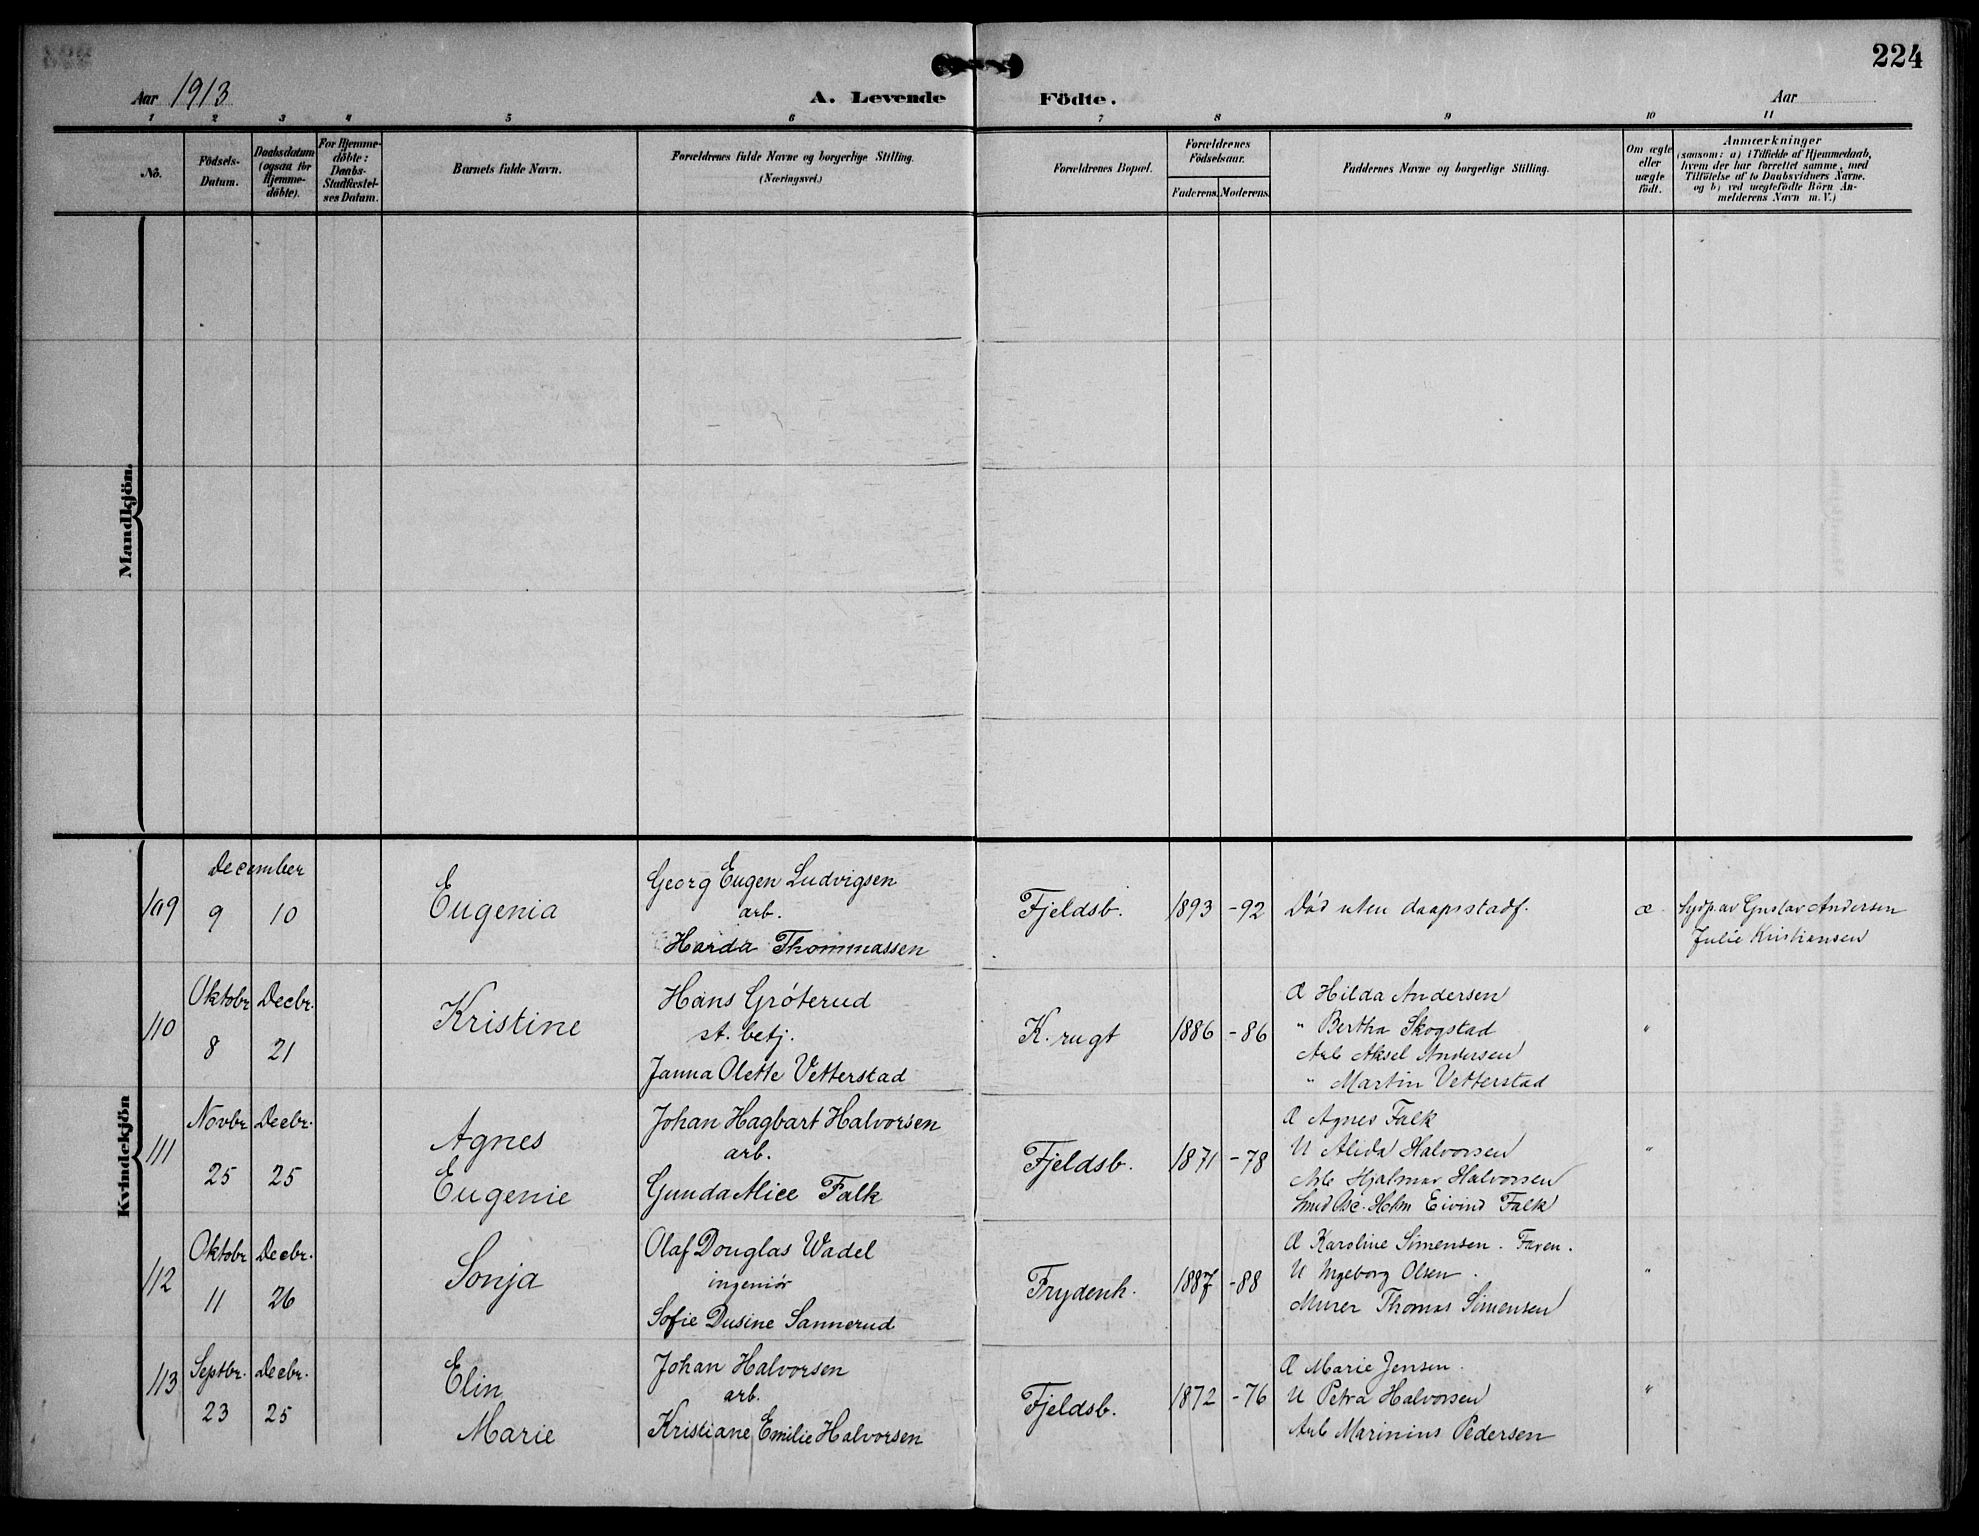 224
Aar 1913
A. Levende Födte.
Aar
1 2 3 4 5 6 7 8 9 10 11
No.
Födsels-
Datum.
Daabsdatum
(ogsaa for
Hjemme-
döbte).
For Hjemme-
döbte:
Daabs-
Stadfæstel-
ses Datum.
Barnets fulde Navn.
Forældrenes fulde Navne og borgerlige Stilling.
(Næringsvei.)
Forældrenes Bopæl.
Forældrenes
Födselsaar.
Faderens. Moderens.
Faddernes Navne og borgerlige Stilling.
Om ægte
eller
uægte
födt.
Anmærkninger
(saasom: a) i Tilfælde af Hjemmedaab,
hvem der har forrettet samme, med
Tilföielse af to Daabsvidners Navne.
og b) ved uægtefödte Börn An-
melderens Navn m. V.)
Mandkjön.
Kvindekjön
109
December
9 10
Eugenia
Georg Eugen Ludvigsen
arb.
Harda Thommassen
Fjeldsb.
1893 -92
Död uten daapsstadf.
æ.
av Gustav Andersen
Julie Kristiansen
110
Oktobr Decbr.
8 21
Kristine
Hans Gröterud
st. betj.
Janna Olette Vetterstad
K. rugt
1886 -86
Hilda Andersen
" Bertha Skogstad
Arb Aksel Andersen
" Martin Vetterstad
"
111
Novbr Decbr.
25 25
Agnes
Eugenie
Johan Hagbart Halvorsen
arb.
Gunda Alice Falk
Fjeldsb.
1871 -78
Agnes Falk
U Alida Halvorsen
Arb Hjalmar Halvorsen
Eivind Falk
"
112
Oktobr Decbr.
11 26
Sonja
Olaf Douglas Wadel
ingeniör
Sofie Dusine Sannerud
Frydenh.
1887 -88
Karoline Simensen.
U Ingeborg Olsen.
Murer Thomas Simensen
"
113
Septbr. Decbr.
23 25
Elin
Marie
Johan Halvorsen
arb.
Kristiane Emilie Halvorsen
Fjeldsb.
1872 -76
Marie Jensen.
U Petra Halvorsen
Arb Marinius Pedersen
"